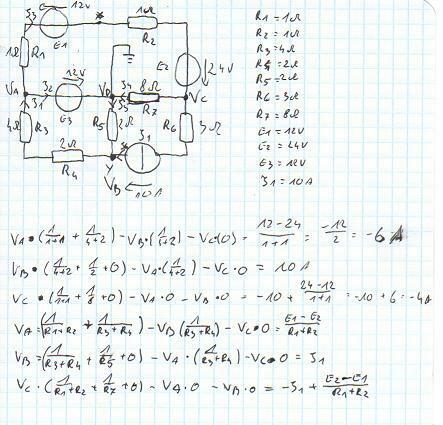 J3
12V
1Ω
R2
E1
1Ω
R1
E2
24V
VA
J2
12V
VD
J4
8Ω
VC
J1
E3
J5
R7
4Ω
R3
R5
2Ω
R6
3Ω
2Ω
J1
R4
Y
VB
10A
R1 = 1Ω
R2 = 1Ω
R3 = 4Ω
R4 = 2Ω
R5 = 2Ω
R6 = 3Ω
R7 = 8Ω
E1 = 12V
E2 = 24V
E3 = 12V
J1 = 10A
VA · (1/1+1 + 1/4+2) - VB · (1/4+2) - VC · (0) = 12-24/1+1 = -12/2 = -6A
VB · (1/4+2 + 1/2 + 0) - VA · (1/4+2) - VC · 0 = 10A
VC · (1/1+1 + 1/8 + 0) - VA · 0 - VB · 0 = -10 + 24-12/1+1 = -10 + 6 = -4A
VA = (1/R1+R2 + 1/R3+R4) - VB (1/R3+R4) - VC · 0 = E1-E2/R1+R2
VB = (1/R3+R4 + 1/R5 + 0) - VA · (1/R3+R4) - VC · 0 = J1
VC · (1/R1+R2 + 1/R7 + 0) - VA · 0 - VB · 0 = -J1 + E2-E1/R1+R2